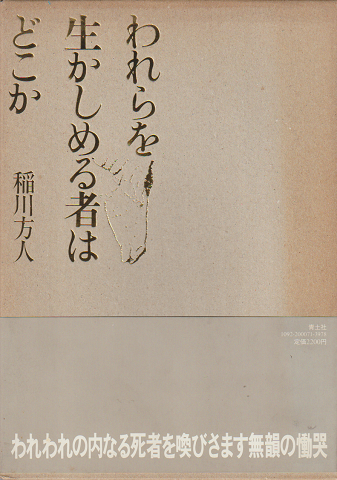 われらを
生かしめる者は
どこか
稲川方人
青土社
定価2200円
われわれの内なる死者を喚びさます無韻の慟哭